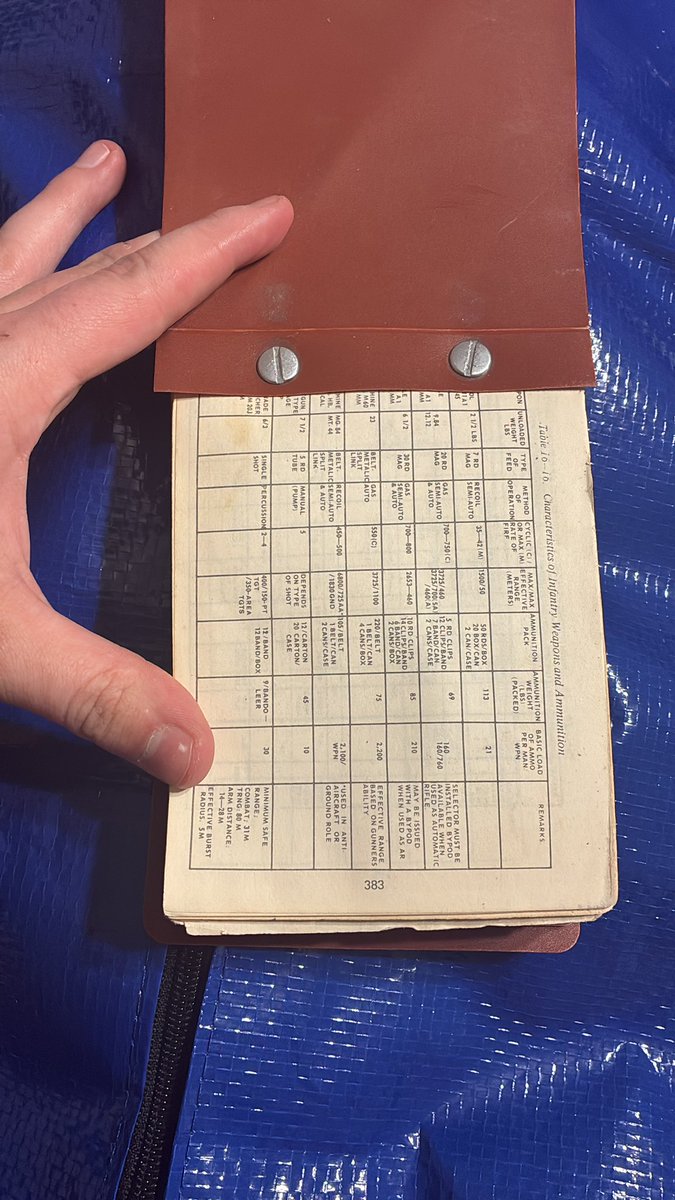 Table 16-1b. Characteristics of Infantry Weapons and Ammunition
UNLOADED WEIGHT LBS
TYPE OF FEED
METHOD OF OPERATION
CYCLIC (C) OR MAX (M) RATE OF FIRE
MAX/MAX EFFECTIVE RANGE METERS
AMMUNITION PACK
AMMUNITION WEIGHT (LBS) (PACKED)
BASIC LOAD OF AMMO PER MAN/WPN
REMARKS
2 1/2 LBS
7 RD MAG
RECOIL SEMI-AUTO
35-42 (M)
1500/50
50 RDS/BOX
20 BOX/CAN
2 CAN/CASE
113
21
9.84
12.12
20 RD MAG
GAS SEMI-AUTO & AUTO
700-750 (C)
3725/460
3725/700(SA)
/460(A)
5 RD CLIPS
12 CLIPS/BAND
7 BAND/CAN
2 CANS/CASE
69
160
160/760
SELECTOR MUST BE
INSTALLED. BYPOD
AVAILABLE WHEN
USED AS AUTOMATIC
RIFLE
6 1/2
30 RD MAG
GAS SEMI-AUTO & AUTO
700-800
2653-460
10 RD CLIPS
14 CLIPS/BAND
6 BAND/CAN
2 CANS/BOX
85
210
MAY BE ISSUED
WITH A BYPOD
WHEN USED AS AR
M60
MM
23
BELT-METALIC SPLIT LINK
GAS AUTO
550(C)
3725/1100
220/BELT
1 BELT/CAN
4 CANS/BOX
75
2,200
EFFECTIVE RANGE
BASED ON GUNNERS
ABILITY
HB,
CAL
MG-84
MT-44
BELT-METALIC SPLIT LINK
RECOIL SEMI-AUTO & AUTO
450-500
6800/725AA
/1830GND
105/BELT
1 BELT/CAN
2 CANS/CASE
2,100/WPN
*USED IN ANTI-
AIRCRAFT OR
GROUND ROLE
GUN
TYPE
7 1/2
5 RD TUBE
MANUAL (PUMP)
5
DEPENDS ON TYPE OF SHOT
12/CARTON
20 CARTON/CASE
45
10
6/2
SINGLE SHOT
PERCUSSION
2-
400/150-PT TGT
/350-AREA TGTS
12/BAND
12 BAND/BOX
9/BANDO-LEER
30
MINIMUM SAFE
RANGE:
COMBAT: 31M
TRNG: 80 M
ARM DISTANCE:
14-28M
EFFECTIVE BURST
RADIUS: 5M
383